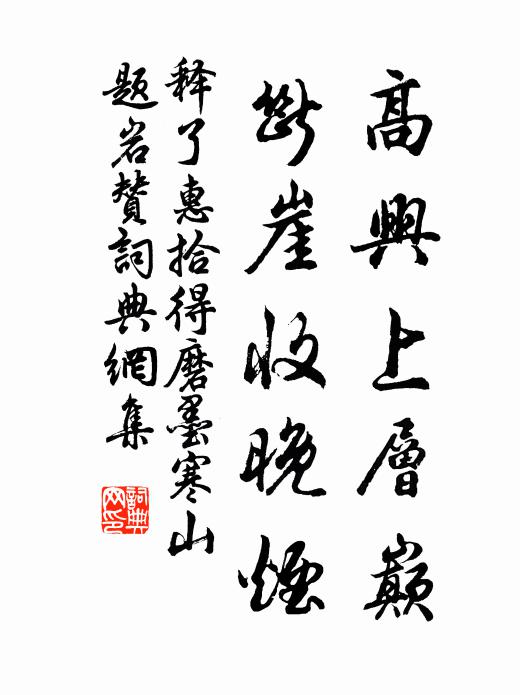 高興上層巔
斷崖收晚煙
释了惠拾得磨墨寒山
題岩贊詞典網集
詞典网印